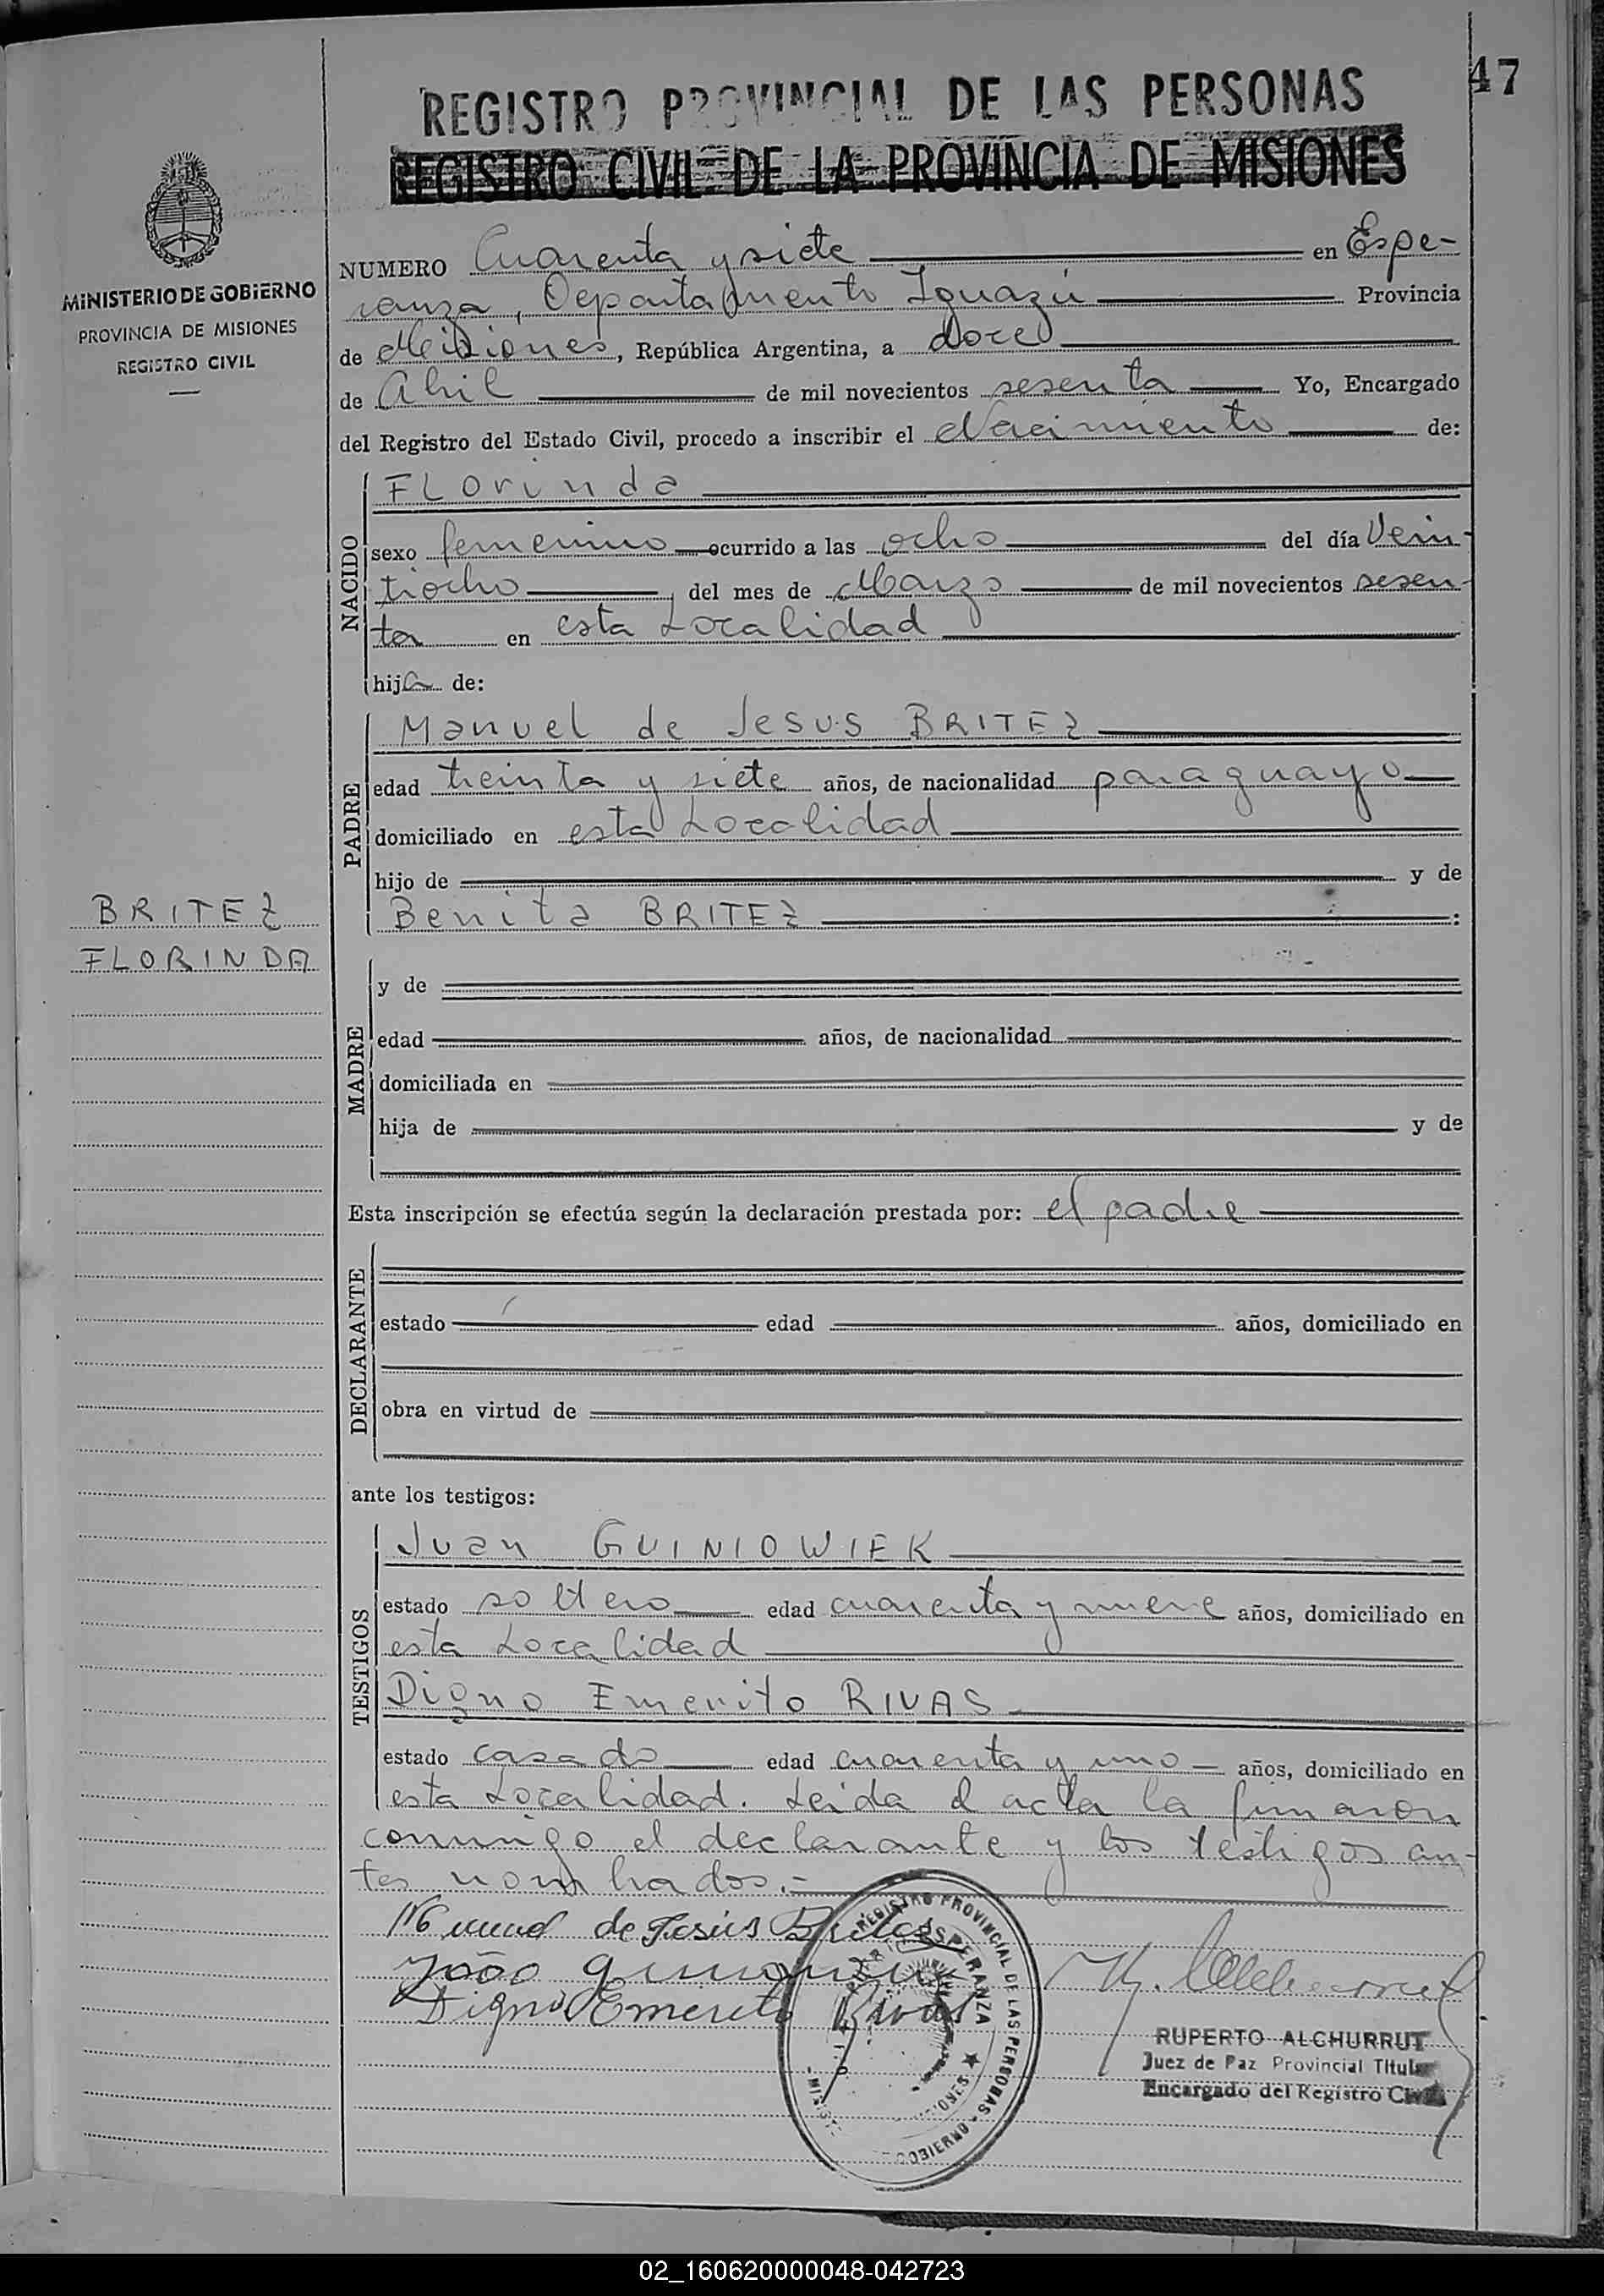 47
REGISTRO PROVINCIAL DE LAS PERSONAS
REGISTRO CIVIL DE LA PROVINCIA DE MISIONES
MINISTERIO DE GOBIERNO
PROVINCIA DE MISIONES
REGISTRO CIVIL
NUMERO Cuarenta y siete en Espe-
ranza, Departamento Iguazú Provincia
de Misiones, República Argentina, a doce
de Abril de mil novecientos sesenta Yo, Encargado
del Registro del Estado Civil, procedo a inscribir el Nacimiento de:
NACIDO
Florinda
sexo femenino ocurrido a las ocho del día Vein-
tiocho del mes de Marzo de mil novecientos sesen-
ta en esta Localidad
hija de:
PADRE
Manuel de Jesus BRITEZ
edad treinta y siete años, de nacionalidad paraguayo
domiciliado en esta Localidad
hijo de y de
Benita BRITEZ :
BRITEZ
FLORINDA
MADRE
y de
edad años, de nacionalidad
domiciliada en
hija de y de
Esta inscripción se efectúa según la declaración prestada por: el padre
DECLARANTE
estado edad años, domiciliado en
obra en virtud de
ante los testigos:
TESTIGOS
Juan GUINIOWIEK
estado soltero edad cuarenta y nueve años, domiciliado en
esta Localidad
Digno Emerito RIVAS
estado casado edad cuarenta y uno años, domiciliado en
esta Localidad. Leida el acta la firmaron
conmigo el declarante y los testigos an-
tes nombrados.-
Manuel de Jesús Britez
João
Digno Emerito Rivas
REGISTRO PROVINCIAL DE LAS PERSONAS - GOBIERNO
ESPERANZA
RUPERTO ALCHURRUT
Juez de Paz Provincial Titular
Encargado del Registro Civil
02_160620000048-042723